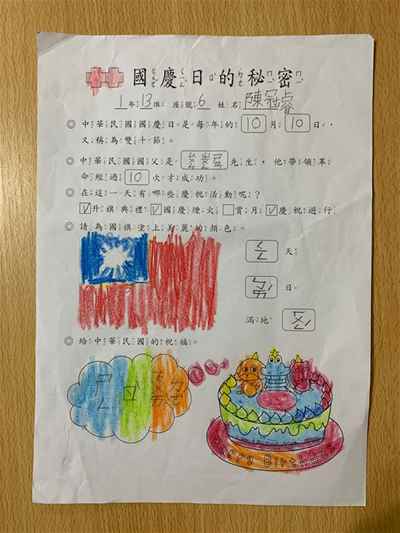 國慶日的秘密
1年13班 座號6 姓名陳冠睿
◎ 中華民國國慶日是每年的 10 月 10 日,
又稱為雙十節。
◎ 中華民國國父是 先生,他帶領革
命經過 10 次才成功。
◎ 在這一天有哪些慶祝活動呢?
☑升旗典禮 ☑國慶煙火 □賞月 ☑慶祝遊行
◎ 請為國旗塗上美麗的顏色。
天
日
滿地
◎ 給中華民國的祝福。